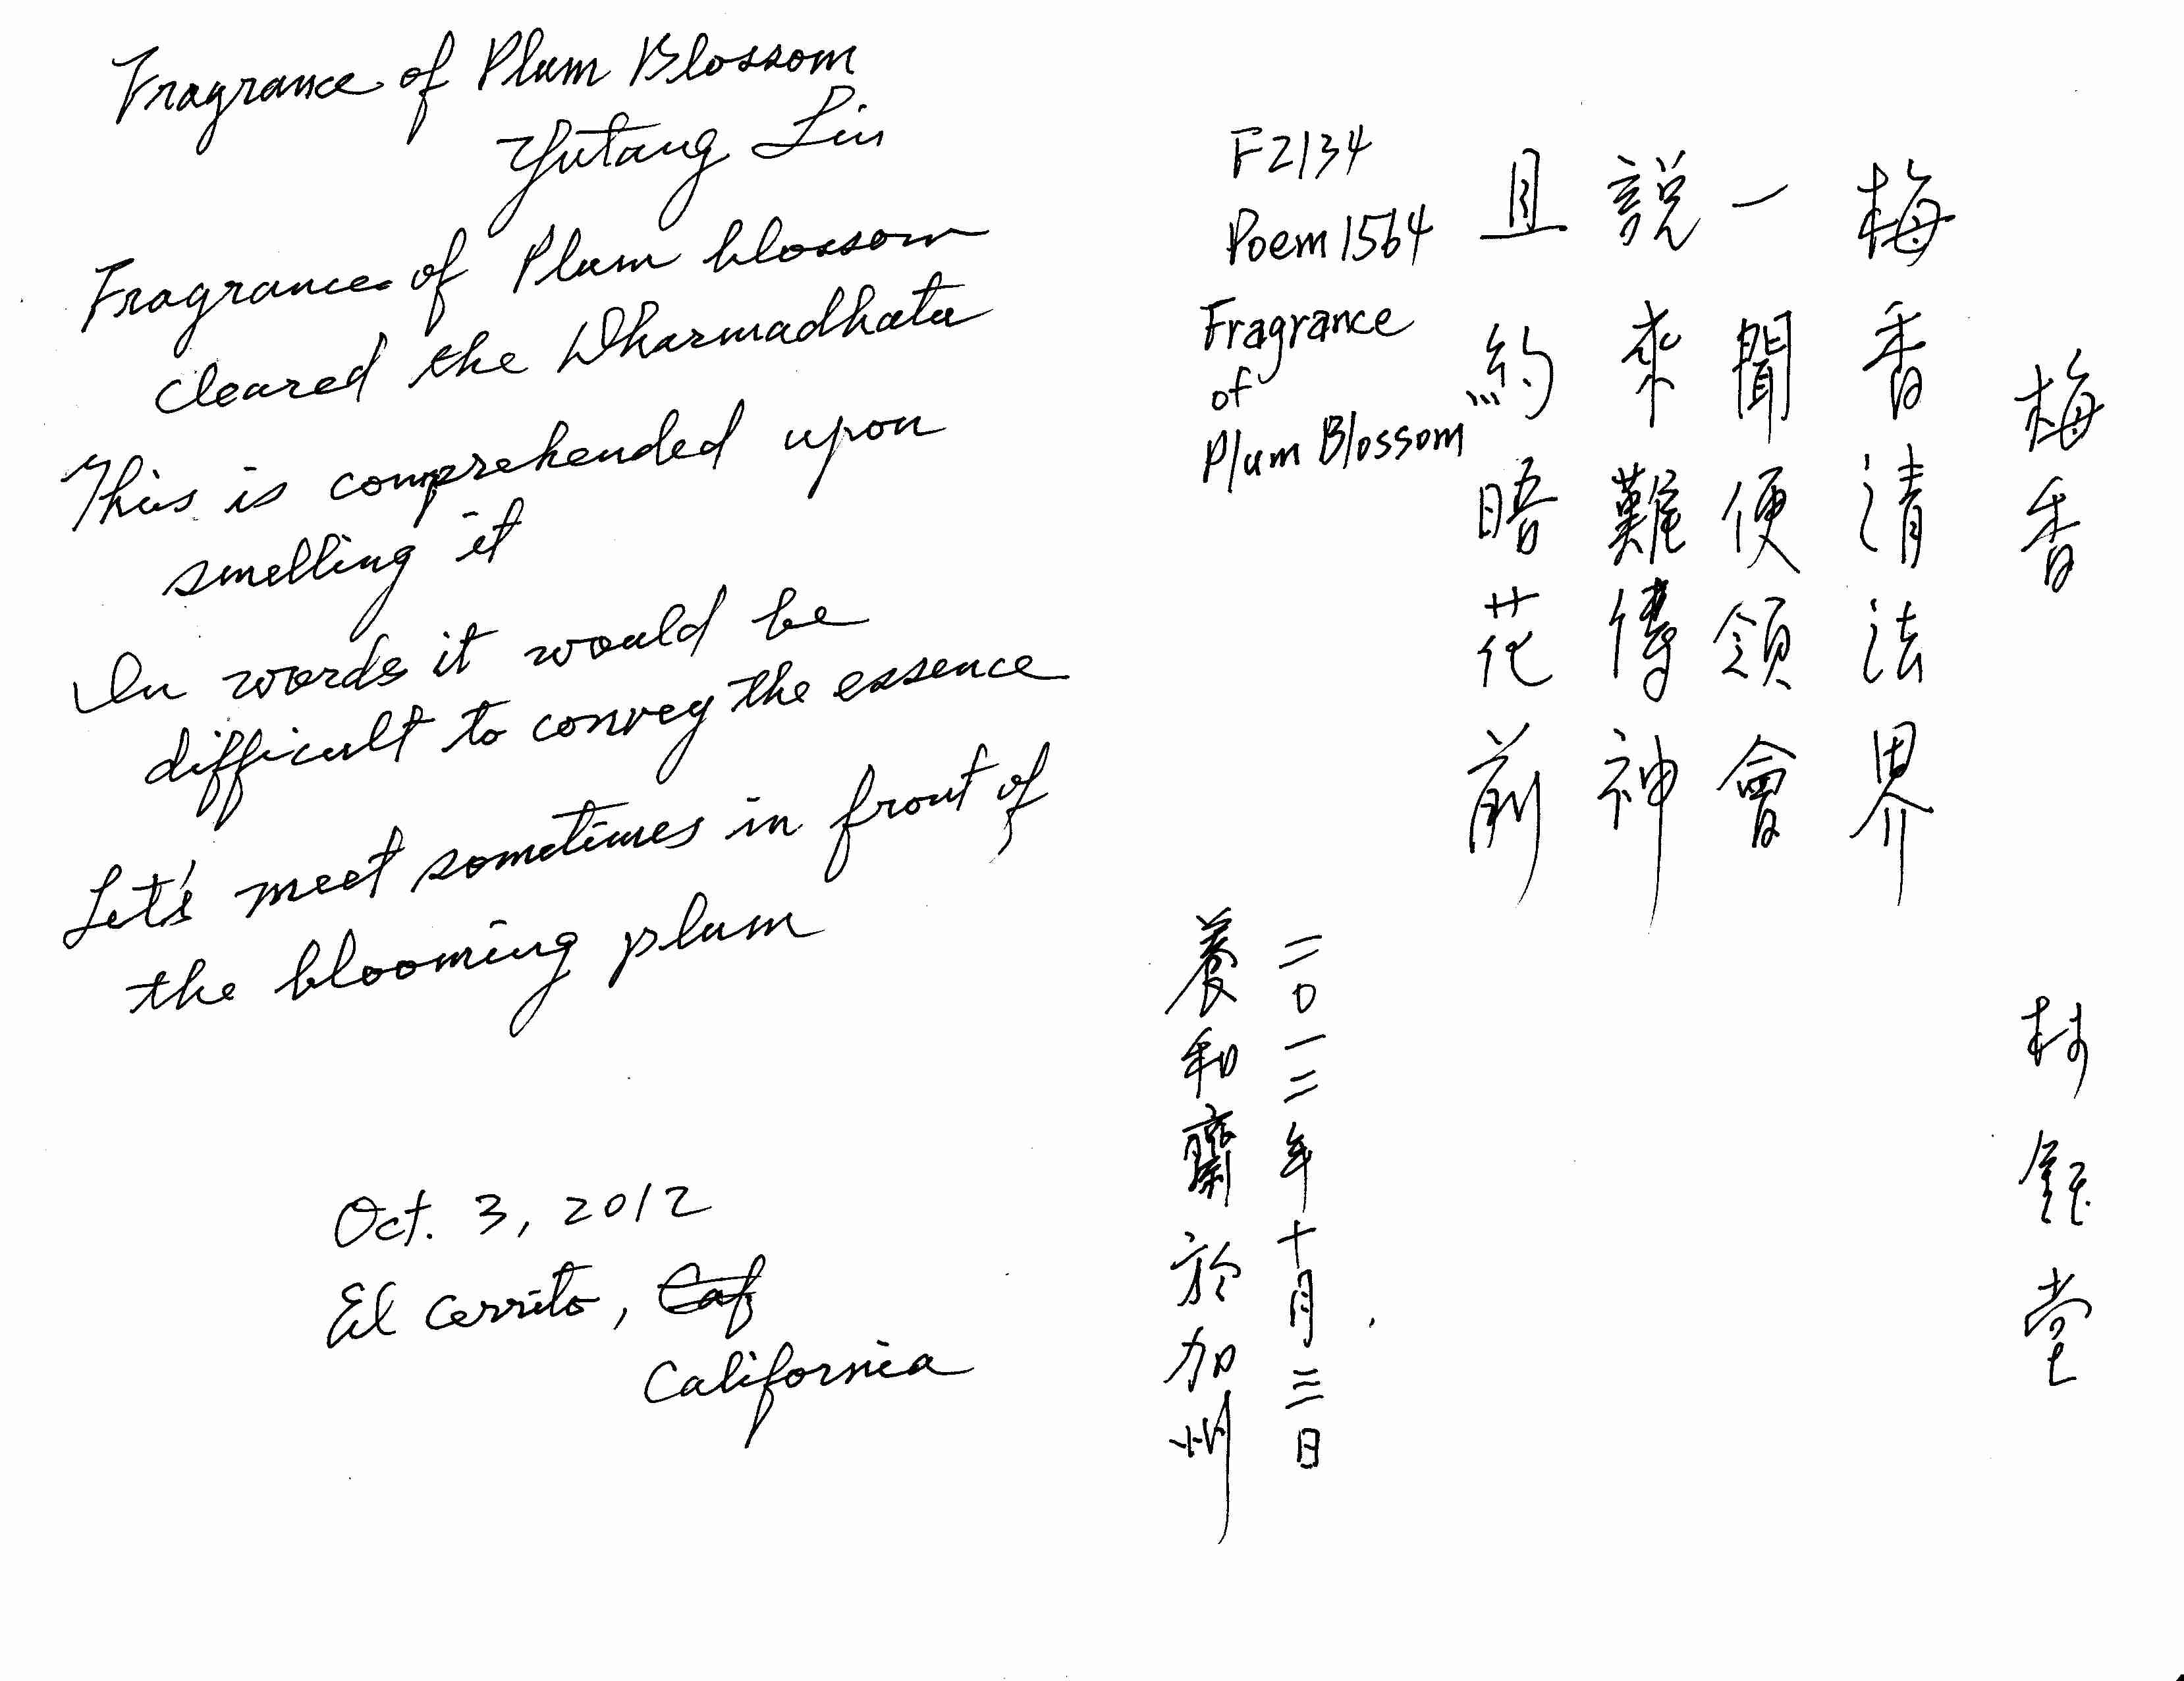 Fragrance of Plum Blossom
Yutang Lin
Fragrance of Plum blossom
cleared the Dharmadhatu
This is comprehended upon
smelling it
In words it would be
difficult to convey the essence
Let's meet sometimes in front of
the blooming plum
Oct. 3, 2012
El Cerrito, Caf
California
F2134
Poem 1564
Fragrance
of
Plum Blossom
梅香
林鈺堂
梅香清法界
一聞便領會
説來難傳神
且約晤花前
二〇一二年十月三日
養和齋於加州